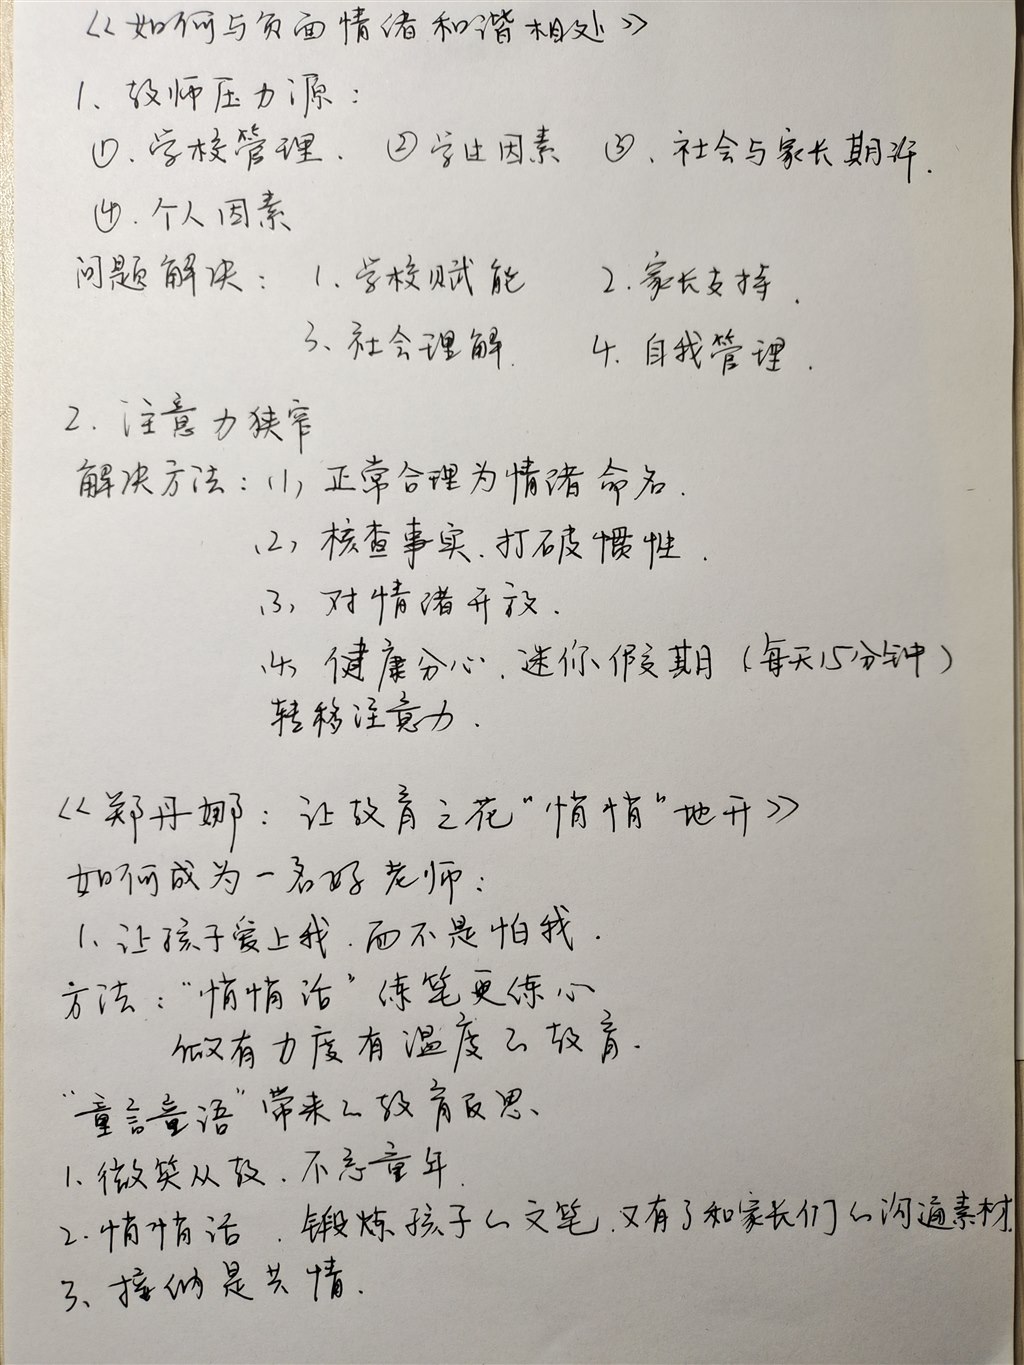 《如何与负面情绪和谐相处》
1、教师压力源：
①、学校管理、 ②学生因素 ③、社会与家长期许.
④.个人因素
问题解决： 1.学校赋能 2.家长支持.
3、社会理解. 4.自我管理.
2.注意力狭窄
解决方法：(1)正常合理为情绪命名.
(2)核查事实、打破惯性.
(3)对情绪开放.
(4)健康分心、迷你假期(每天15分钟)
转移注意力.
《郑丹娜：让教育之花“悄悄”地开》
如何成为一名好老师：
1、让孩子爱上我、而不是怕我.
方法：“悄悄话”练笔更练心
做有力度有温度的教育.
“童言童语”带来的教育反思、
1.微笑从教、不忘童年.
2.悄悄话、锻炼孩子的文笔、又有了和家长们的沟通素材.
3、接纳是共情.